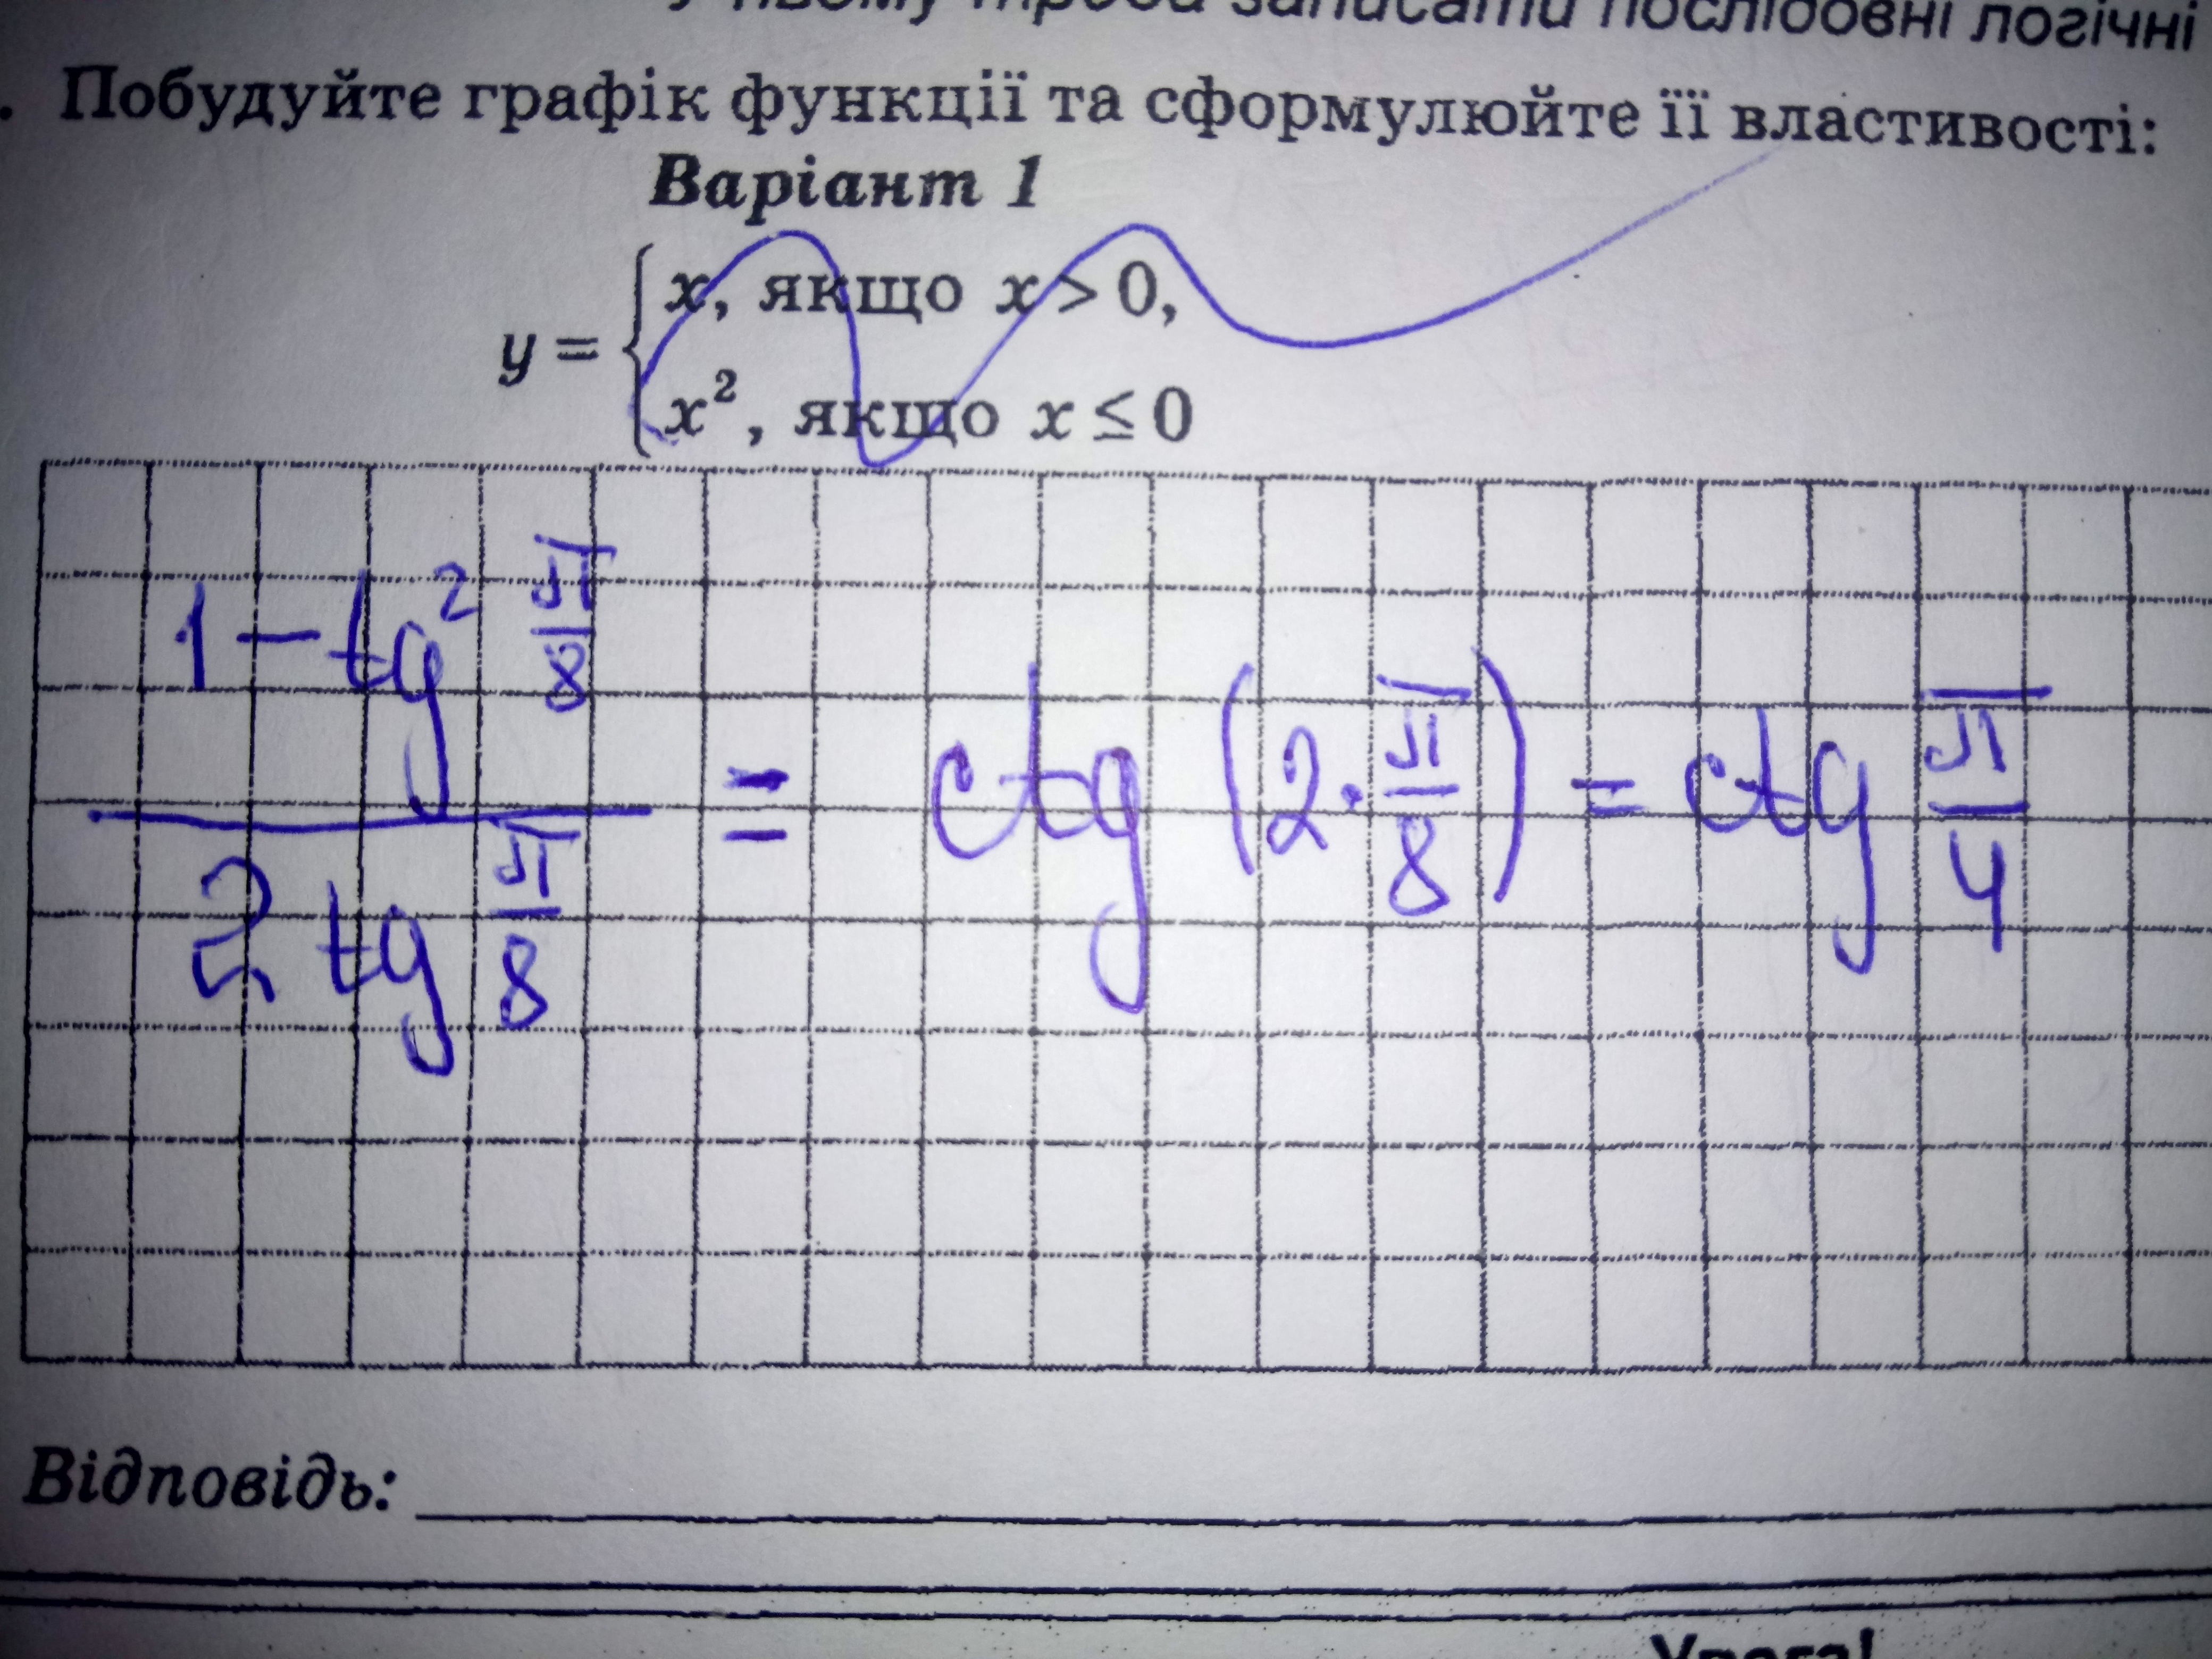 У ньому треба записати послідовні логічні
. Побудуйте графік функції та сформулюйте її властивості:
Варіант 1
y = { x, якщо x > 0,
x², якщо x ≤ 0
(1 - tg² π/8) / (2 tg π/8) = ctg (2 · π/8) = ctg π/4
Відповідь:
Увага!